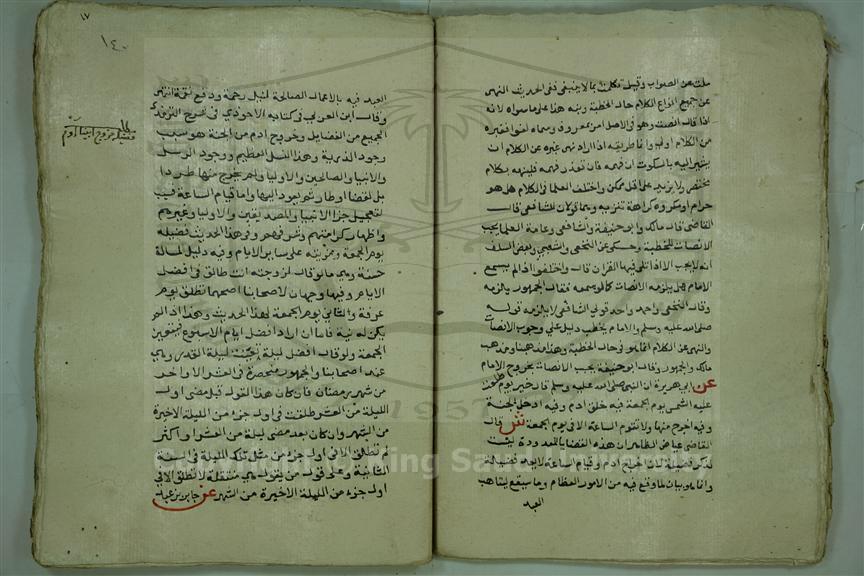 ملت عن الصواب وقيل تكلمت بما لا ينبغي ففي الحديث النهى
عن جميع انواع الكلام حال الخطبة ونبه هذا على ما سواه لانه
اذا قال انصت وهو في الاصل امر بمعروف وسماه لغوا فغيره
من الكلام اولى وانما طريقه اذا اراد نهى غيره عن الكلام ان
يشير اليه بالسكوت ان فهمه فان تعذر فهمه فلينهه بكلام
مختصر ولا يزيد على اقل ممكن واختلف العلما في الكلام هل هو
حرام او مكروه كراهة تنزيه وهما قولان للشافعي قال
القاضي قال مالك وابو حنيفة والشافعي وعامة العلما يجب
الانصات للخطبة وحكي عن النخعي والشعبي وبعض السلف
انه لا يجب الا اذا تلي فيها القران قال واختلفوا اذا لم يسمع
الامام هل يلزمه الانصات كما لو سمعه فقال الجمهور يلزمه
وقال النخعي واحمد واحد قولي الشافعي لا يلزمه قوله
صلى الله عليه وسلم والامام يخطب دليل على وجوب الانصات
والنهى عن الكلام انما هو في حال الخطبة وهذا مذهبنا ومذهب
مالك والجمهور وقال ابو حنيفة يجب الانصات بخروج الامام
عن ابي هريرة ان النبي صلى الله عليه وسلم قال خير يوم طلعت
عليه الشمس يوم الجمعة فيه خلق ادم وفيه ادخل الجنة
وفيه اخرج منها ولا تقوم الساعة الا في يوم الجمعة ش قال
القاضي عياض الظاهر ان هذه القضايا المعدودة ليست
لذكر فضيلة لان اخراج ادم وقيام الساعة لا يعد فضيلة
وانما هو بيان لما وقع فيه من الامور العظام وما سيقع ليتاهب
العبد
١٧
١٤٠
العبد فيه بالاعمال الصالحة لنيل رحمة ودفع نقمة انتهى
وقال ابن العربي في كتابه الاحوذي في شرح الترمذي
الجميع من الفضايل وخروج ادم من الجنة هو سبب
وجود الذرية وهذا النسل العظيم ووجود الرسل
والانبيا والصالحين والاوليا ولم يخرج منها طردا
بل لقضا اوطار ثم يعود اليها واما قيام الساعة فسبب
لتعجيل جزا الانبيا والصديقين والاوليا وغيرهم
واظهار كرامتهم وشرفهم وفي هذا الحديث فضيلة
يوم الجمعة ومزيته على ساير الايام وفيه دليل لمسالة
حسنة وهي ما لو قال لزوجته انت طالق في افضل
الايام وفيها وجهان لاصحابنا اصحهما تطلق يوم
عرفة والثاني يوم الجمعة لهذا الحديث وهذا اذا لم
يكن له نية فاما ان اراد افضل ايام الاسبوع فيتعين
الجمعة ولو قال افضل ليلة تعينت ليلة القدر وهي
عند اصحابنا والجمهور منحصرة في العشر الاواخر
من شهر رمضان فان كان هذا القول قبل مضى اول
الليلة من العشر طلقت في اول جزء من الليلة الاخيرة
من الشهر وان كان بعد مضى ليلة من العشر او اكثر
لم تطلق الا في اول جزء من مثل تلك الليلة في السنة
الثانية وعلى قول من يقول هي منتقلة لا تطلق الا في
اول جزء من الليلة الاخيرة من الشهر عن جابر بن عبد
خروج ابينا آدم
1957
King Saud University